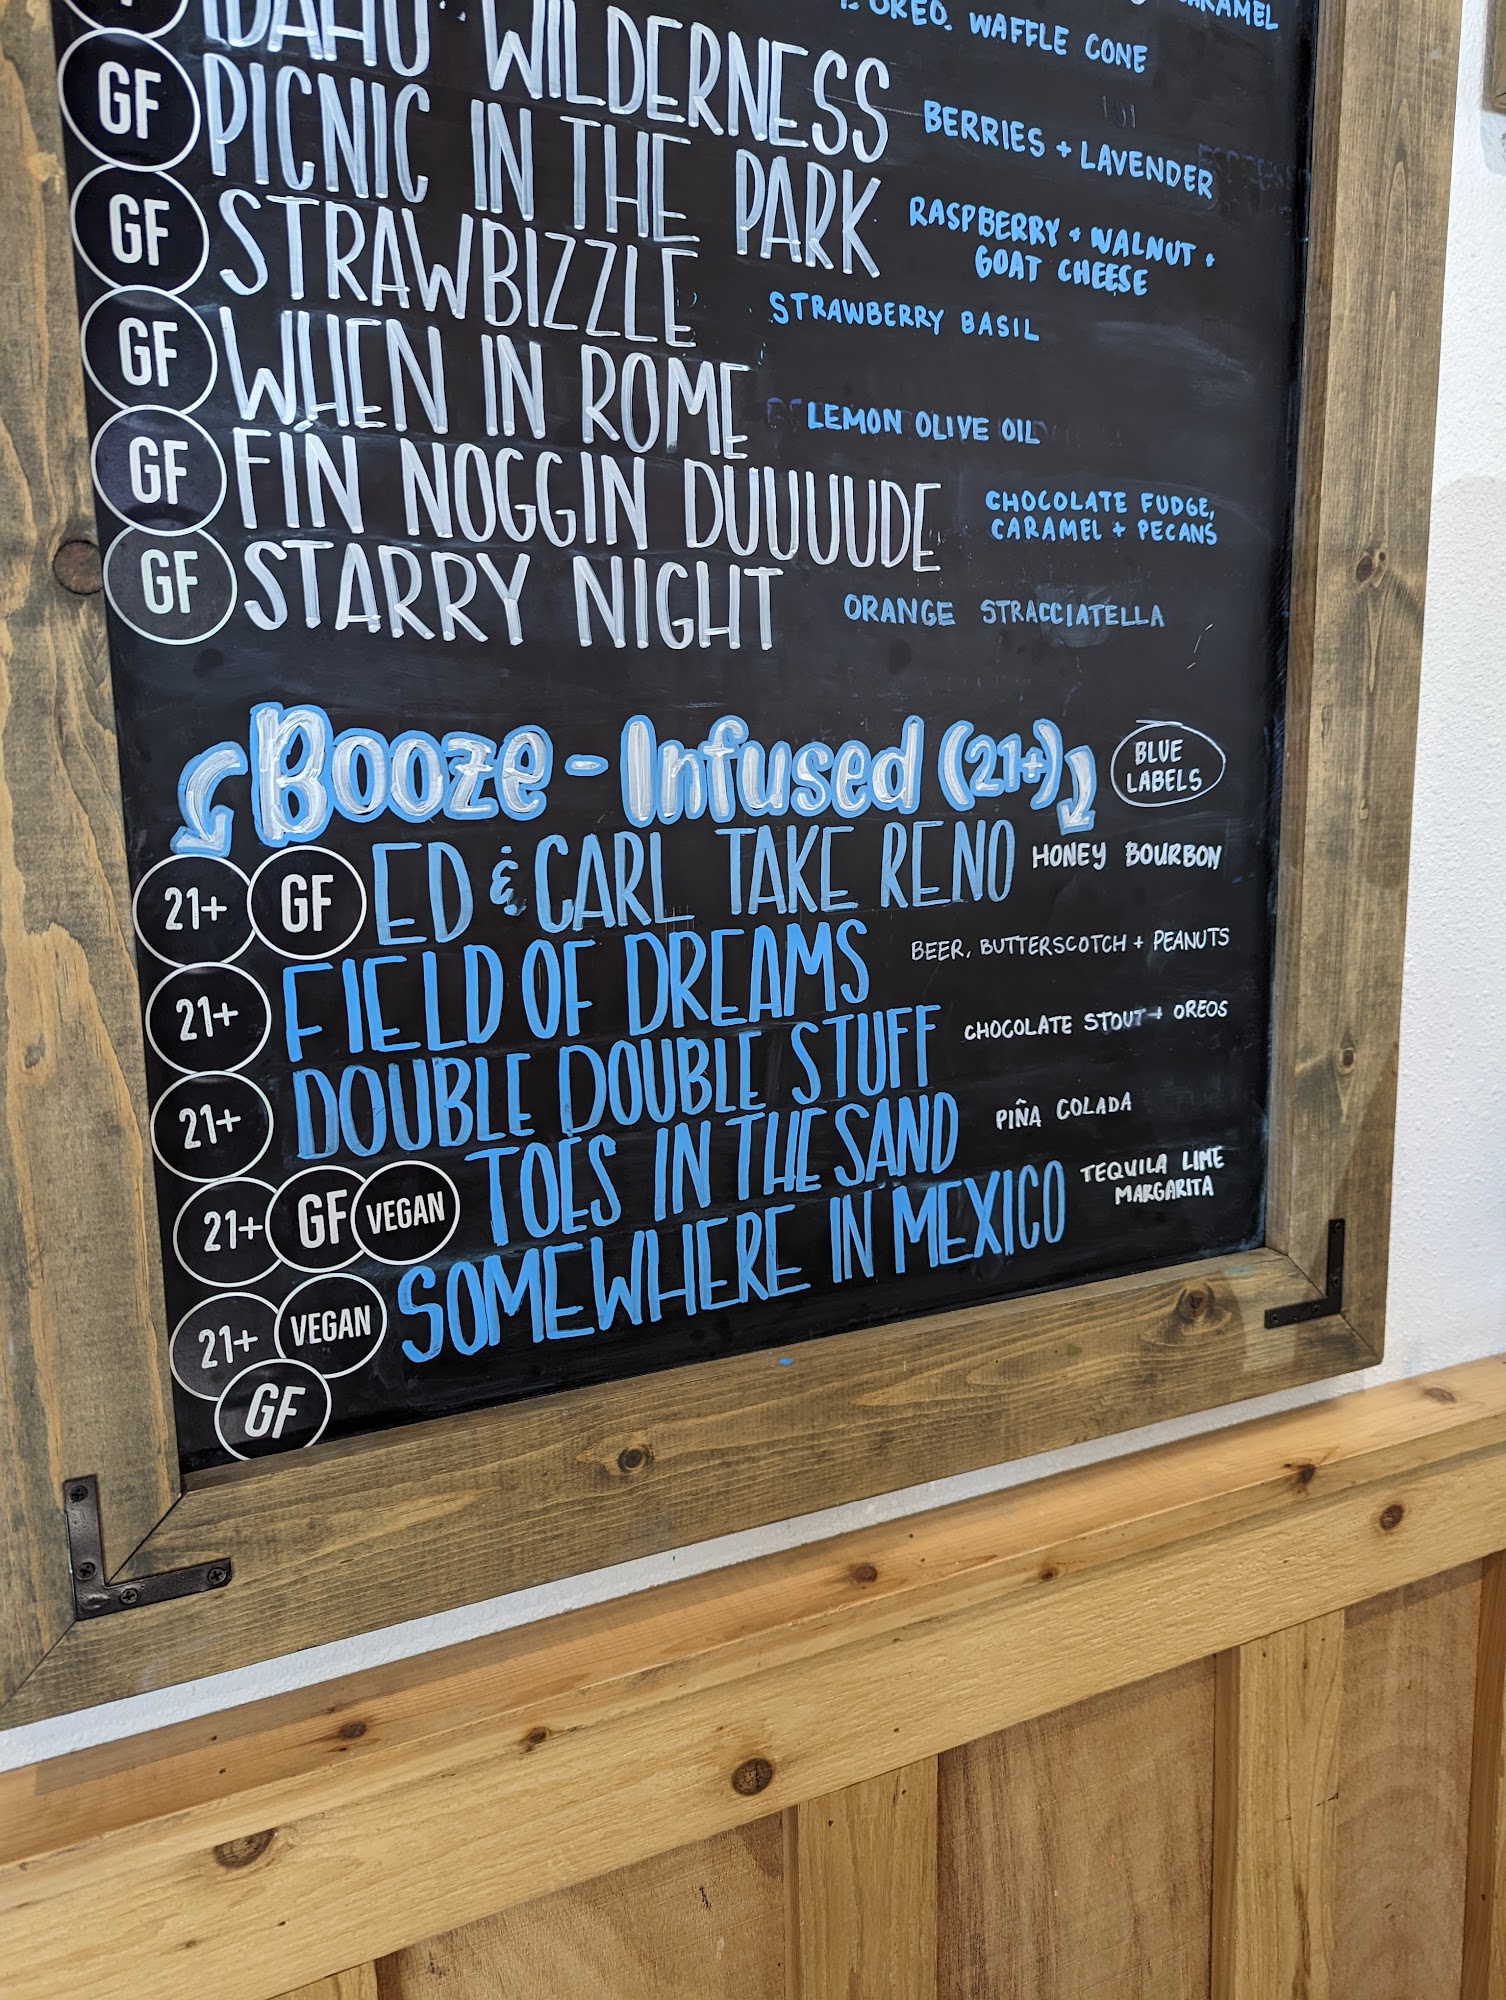 CARAMEL
OREO, WAFFLE CONE
IDAHO WILDERNESS BERRIES + LAVENDER
GF PICNIC IN THE PARK RASPBERRY + WALNUT +
GOAT CHEESE
GF STRAWBIZZLE STRAWBERRY BASIL
GF WHEN IN ROME LEMON OLIVE OIL
GF FIN NOGGIN DUUUUDE CHOCOLATE FUDGE,
CARAMEL + PECANS
GF STARRY NIGHT ORANGE STRACCIATELLA
Booze-Infused (21+) BLUE
LABELS
21+ GF ED & CARL TAKE RENO HONEY BOURBON
21+ FIELD OF DREAMS BEER, BUTTERSCOTCH + PEANUTS
21+ DOUBLE DOUBLE STUFF CHOCOLATE STOUT + OREOS
21+ GF VEGAN TOES IN THE SAND PIÑA COLADA
21+ VEGAN SOMEWHERE IN MEXICO TEQUILA LIME
MARGARITA
GF